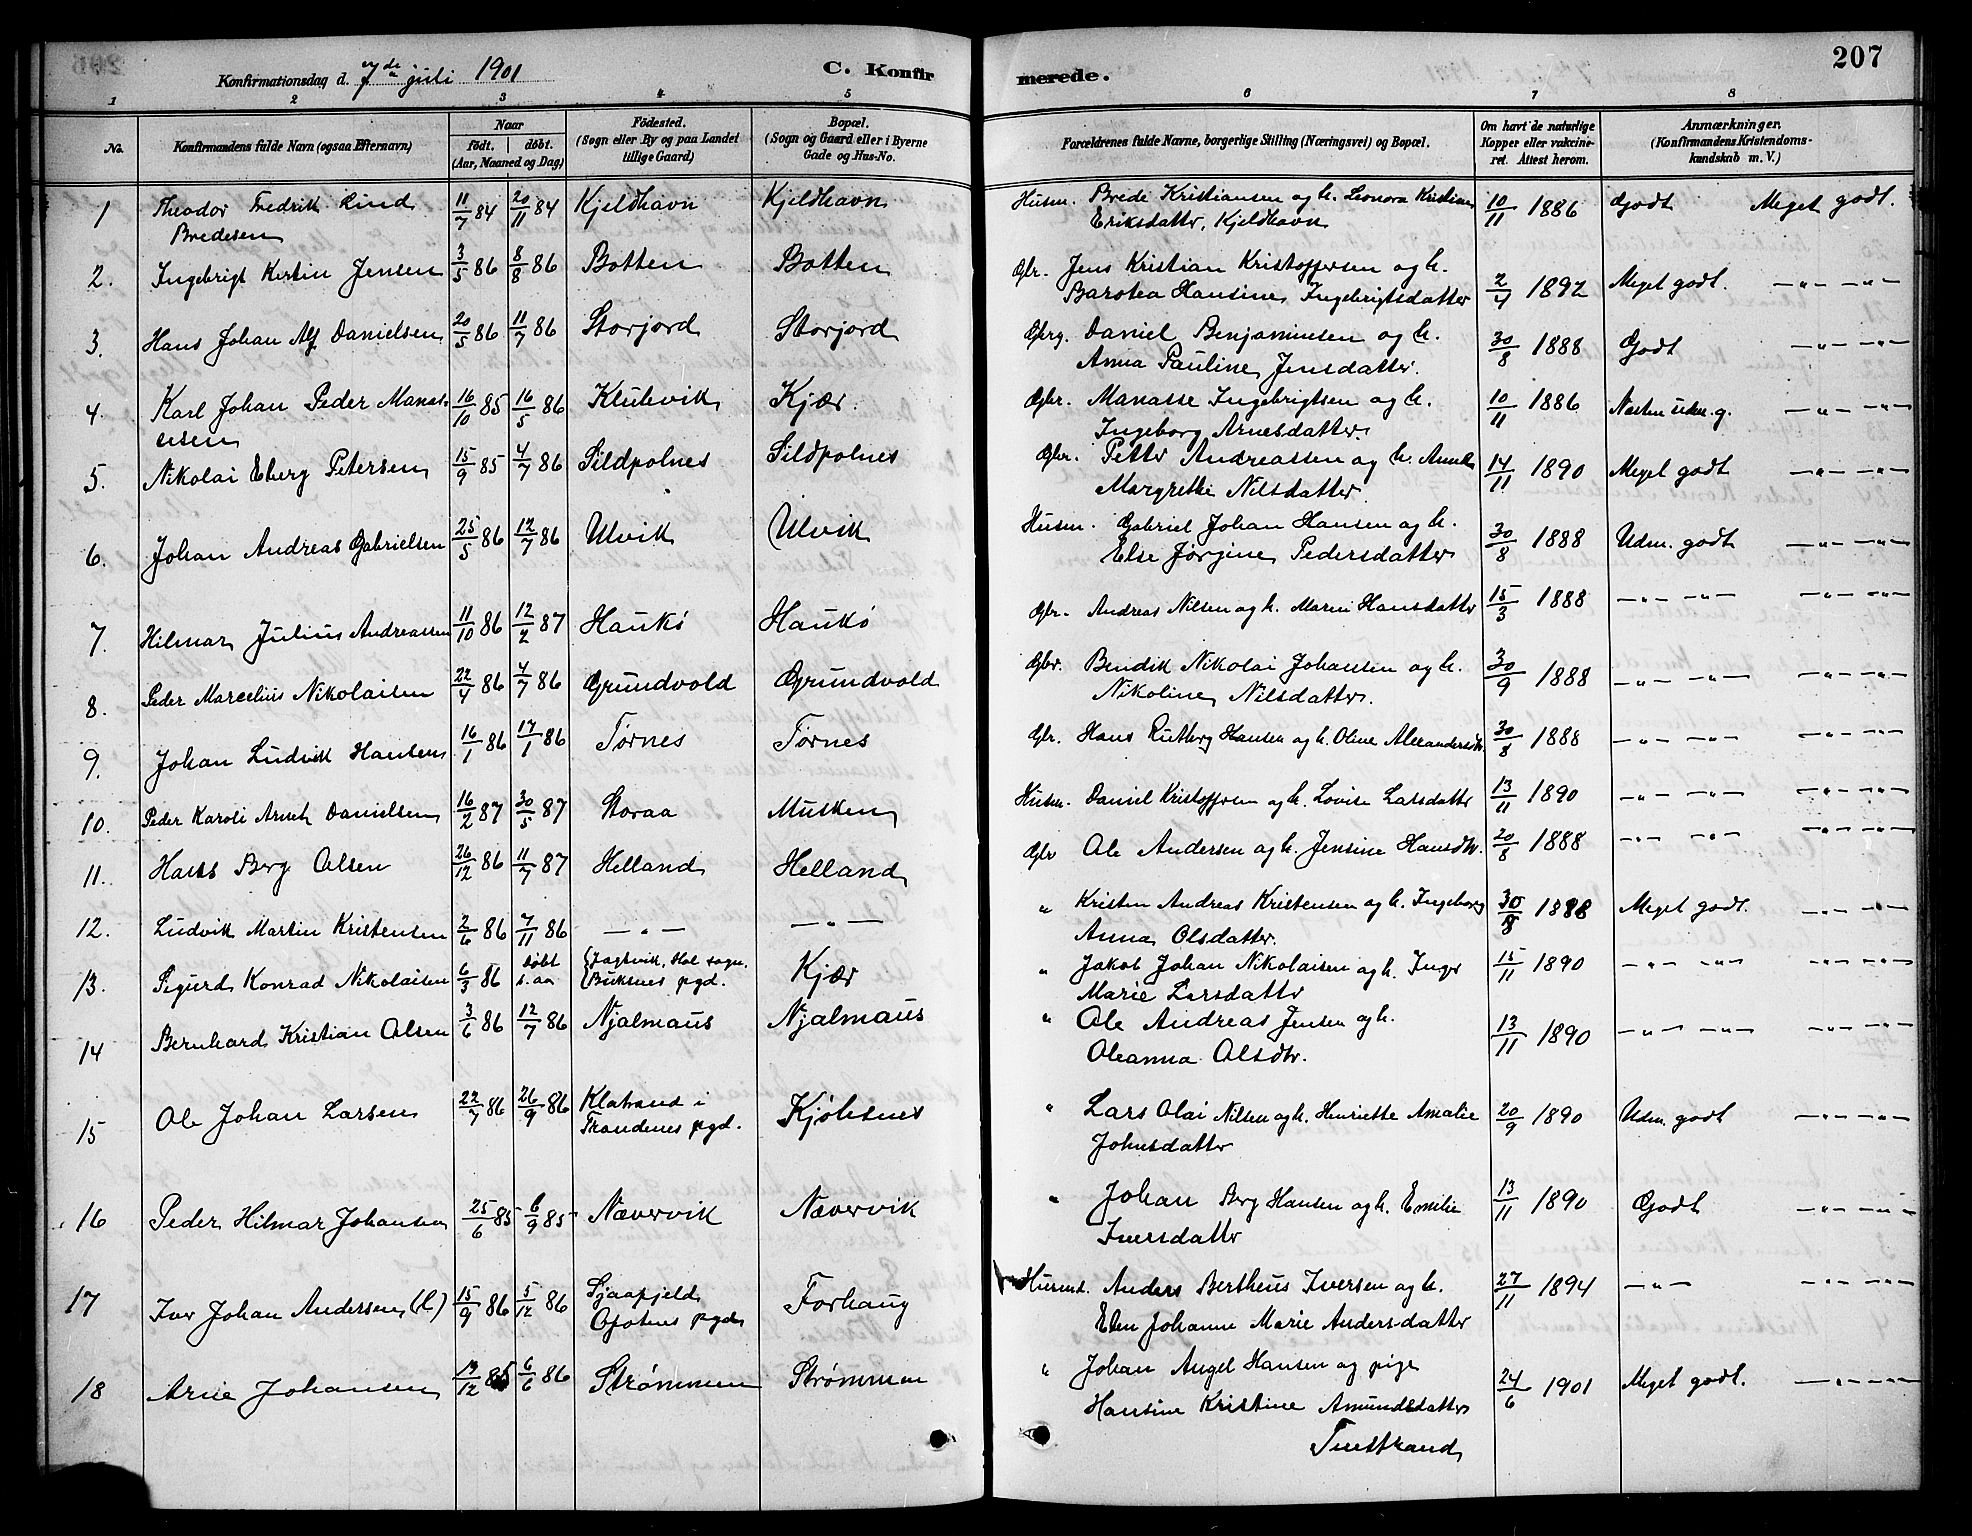 207
Konfirmationsdag d. 7de juli 1901
C. Konfirmerede.
1 2 3 4 5 6 7 8
No.
Konfirmandens fulde Navn (ogsaa Efternavn)
Naar
födt. döbt.
(Aar, Maaned og Dag)
Födested.
(Sogn eller By og paa Landet
tillige Gaard)
Bopæl.
(Sogn og Gaard eller i Byerne
Gade og Hus-No.
Forældrenes fulde Navne, borgerlige Stilling (Næringsvei) og Bopæl.
Om havt de naturlige
Kopper eller vakcine-
ret. Attest herom.
Anmærkninger.
(Konfirmandens Kristendoms-
kundskab m. V.)
1 Theodor Fredrik Rind 11/7 84 20/11 84 Kjeldhavn Kjeldhavn Husm. Brede Kristiansen og h. Leonora Kristine 10/11 1886 Godt Meget godt.
Bredesen Eriksdatter, Kjeldhavn
2. Ingebrigt Kristin Jensen 3/5 86 8/8 86 Botten Botten Gbr. Jens Kristian Kristoffersen og h.
Barotea Hansine Ingebrigtsdatter 2/4 1892 Meget godt. — " — — " —
3. Hans Johan Alf Danielsen 20/5 86 11/7 86 Storjord Storjord Gbrg. Daniel Benjaminsen og h.
Anna Pauline Jensdatter. 30/8 1888 Godt — " — — " —
4. Karl Johan Peder Manas- 16/10 85 16/5 86 Kjær. Gbr. Manasse Ingebrigtsen og h. 10/11 1886 Næsten udm. g. — " — — " —
sesen Ingeborg Arnesdatter.
5. Nikolai Eberg Petersen 15/9 85 4/7 86 Sildpolnes Sildpolnes Gbr. Petter Andreassen og h. 14/11 1890 Meget godt — " — — " —
Margrethe Nilsdatter.
6. Johan Andreas Gabrielsen 25/5 86 12/7 86 Ulvik Ulvik Husm. Gabriel Johan Hansen og h.
Else Jørgine Pedersdatter 30/8 1888 Udm. godt — " — — " —
7. Hilmar Julius Andreassen 11/10 86 12/2 87 Haukö Haukö Gbr. Andreas Nilsen og h. Marin Hansdatter 15/3 1888 — " — — " — — " — — " —
8. Peder Marcelius Nikolaisen 22/4 86 4/7 86 Grundvold Grundvold Gbr. Bendik Nikolai Johansen og h.
Nikoline Nilsdatter. 30/9 1888 — " — — " — — " — — " —
9. Johan Ludvik Hansen 16/1 86 17/1 86 Tørnes Tørnes Gbr. Hans Rutberg Hansen og h. Oline Alexandersdtr 30/8 1888 — " — — " — — " — — " —
10. Peder Karoli Arnet Danielsen 16/2 87 30/5 87 Storaa Musken Husm. Daniel Kristoffersen og h. Lovise Larsdatter 13/11 1890 — " — — " — — " — — " —
11. Hans Berg Olsen 26/12 86 11/7 87 Helland Helland Gbr Ole Andersen og h. Jensine Hansdtr. 20/8 1888 — " — — " — — " — — " —
12. Ludvik Martin Kristensen 2/6 86 7/11 86 — " — — " — " Kristen Andreas Kristensen og h. Ingeborg 30/8 1888 Meget godt. — " — — " —
Anna Olsdatter.
13. Sigurd Konrad Nikolaisen 6/3 86 döbt s. aa (Jagtvik, Hol sogn, Kjær " Jakob Johan Nikolaisen og h. Inger 15/11 1890 — " — — " — — " — — " —
(Buksnes pgd. Marie Larsdatter
14 Bernhard Kristian Olsen 3/6 86 12/7 86 Njalmaus Njalmaus " Ole Andreas Jensen og h.
Oleanna Olsdtr. 13/11 1890 — " — — " — — " — — " —
15 Ole Johan Larsen 22/7 86 26/9 86 Klatrand i Kjöbsnes " Lars Olai Nilsen og h. Henriette Amalie 20/9 1890 Udm. godt — " — — " —
Trondenes pgd. Johnsdatter
16 Peder Hilmar Johansen 25/6 85 6/9 85 Nævervik Nævervik " Johan Berg Hansen og h. Emilie 13/11 1890 Godt — " — — " —
Iversdatter
17 Iver Johan Andersen (h) 15/9 86 5/12 86 Sjaafjeld Forhaug Husmd. Anders Bertheus Iversen og h. 27/11 1894 — " — — " — — " —
Ofotens pgd. Elen Johanne Marie Andersdatter
18 Arne Johansen 19/12 85 6/6 86 Strømmen Strømmen " Johan Angel Hansen og pige 24/6 1901 Meget godt. — " — — " —
Hansine Kristine Amundsdatter